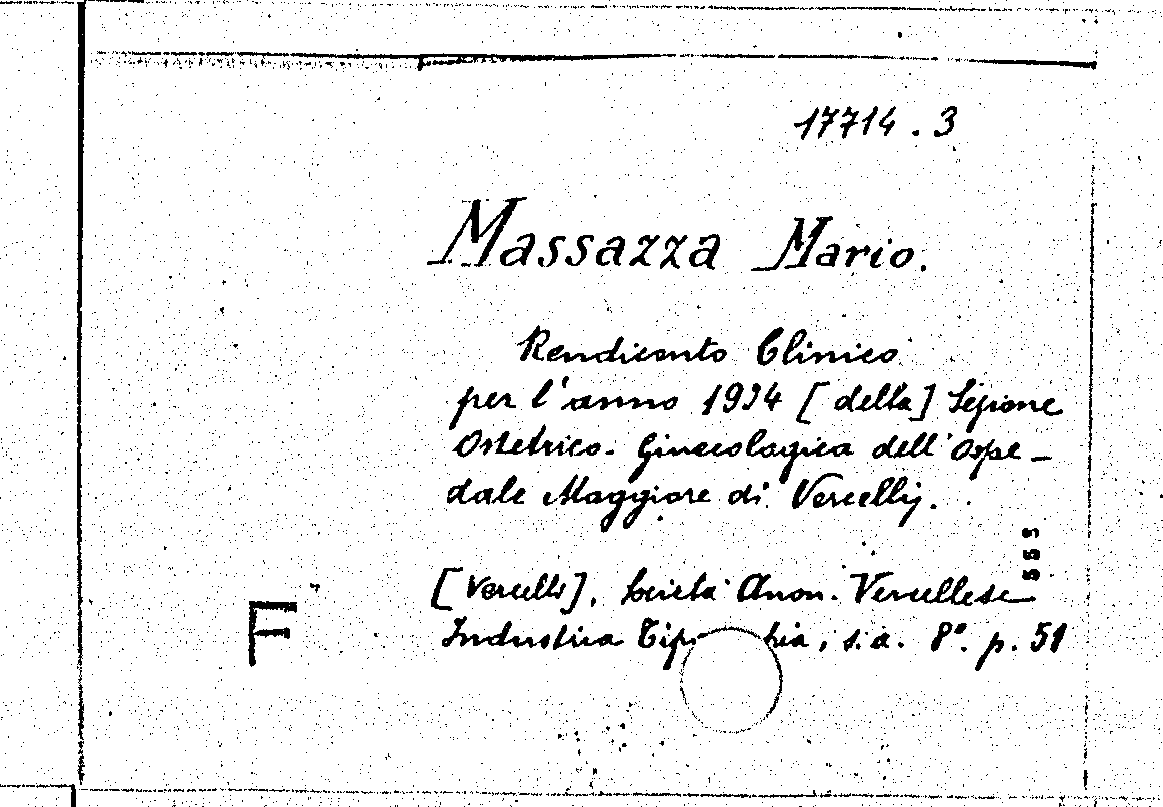 17714.3
Massazza Mario.
Rendiconto Clinico
per l'anno 1934 [della] Sezione
Ostetrico-Ginecologica dell'Ospe-
dale Maggiore di Vercelli.
555
[Vercelli], Società Anon. Vercellese
Industria Tip hia, s.a. 8°. p. 51
F